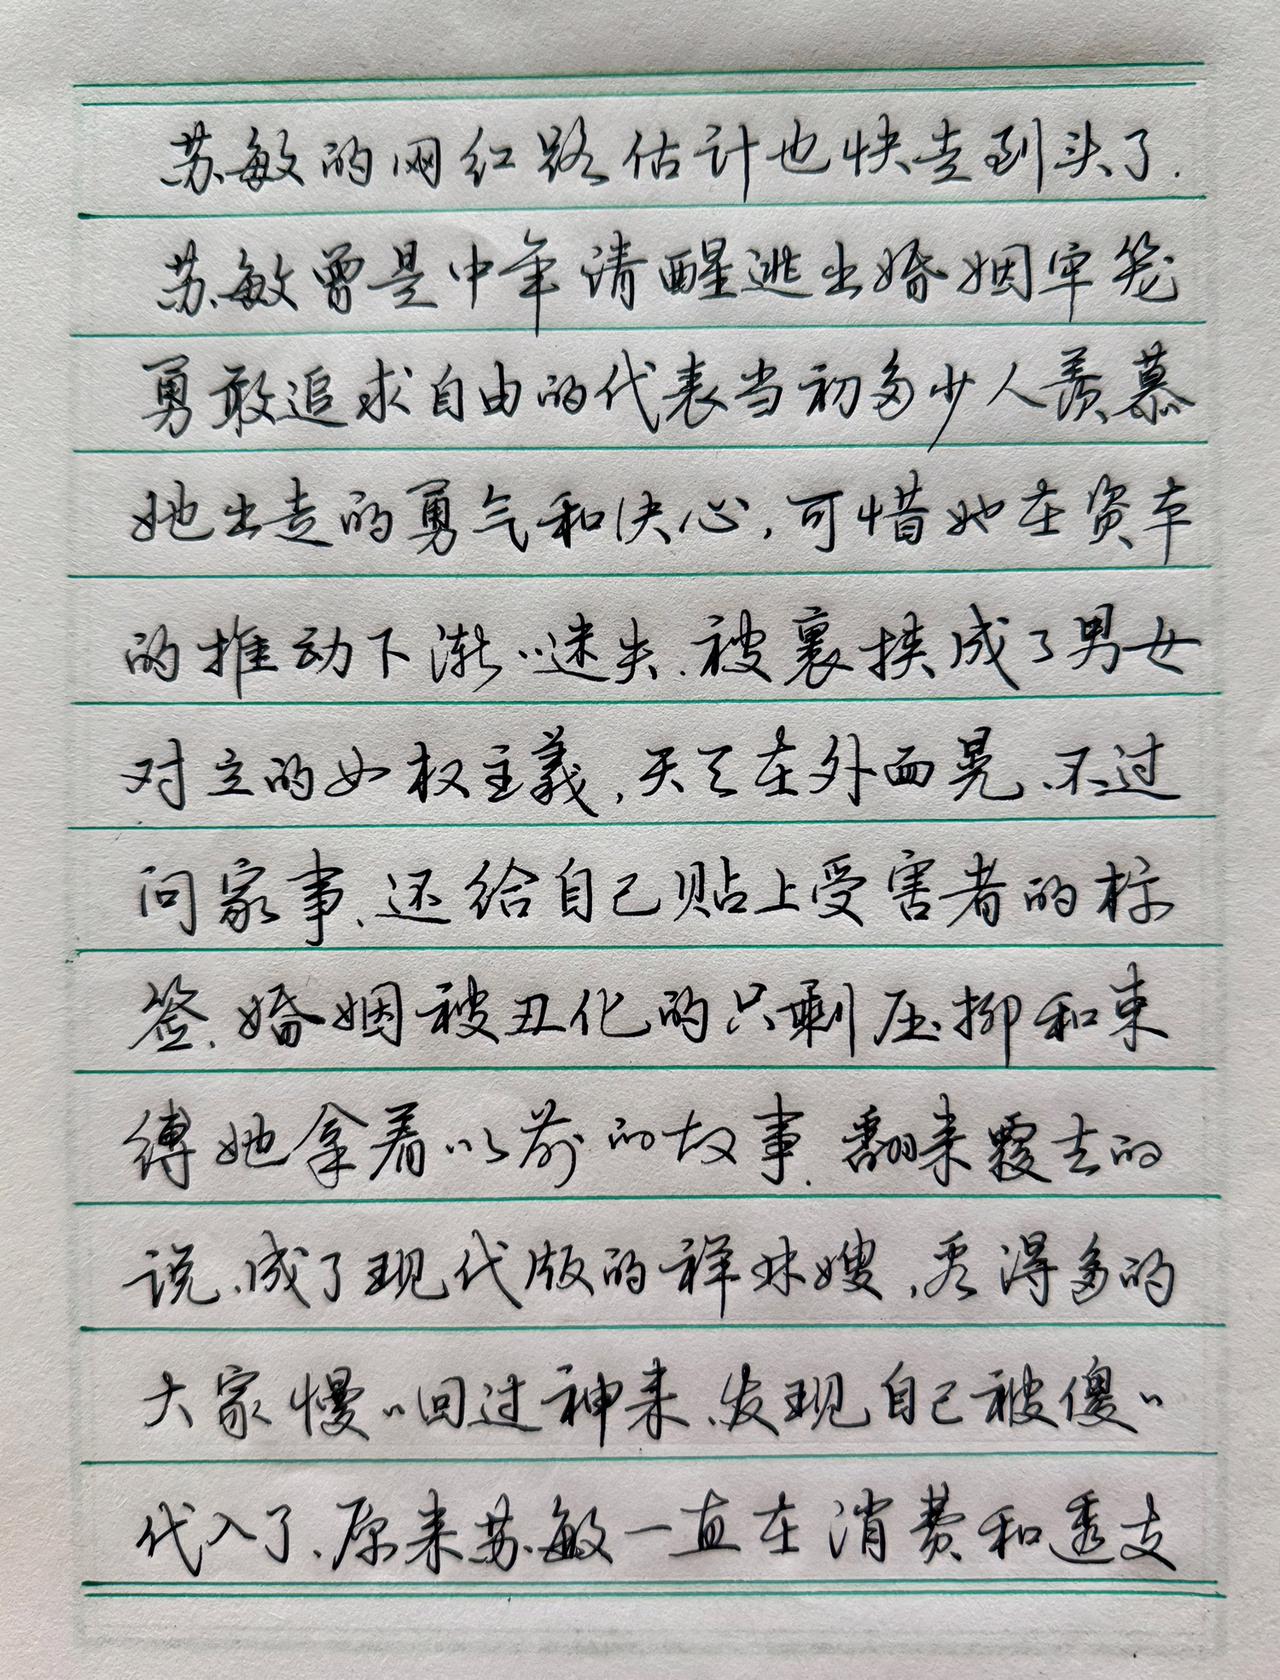 苏敏的网红路估计也快走到头了.
苏敏曾是中年请醒逃出婚姻牢笼
勇敢追求自由的代表当初多少人羡慕
她出走的勇气和决心,可惜她在资本
的推动下渐〃迷失.被裹挟成了男女
对立的女权主義,天天在外面晃、不过
问家事、还给自己贴上受害者的标
签、婚姻被丑化的只剩压抑和束
缚她拿着以前的故事.翻来覆去的
说、成了现代版的祥林嫂,看得多的
大家慢〃回过神来、发现自己被傻〃
代入了、原来苏敏一直在消费和透支